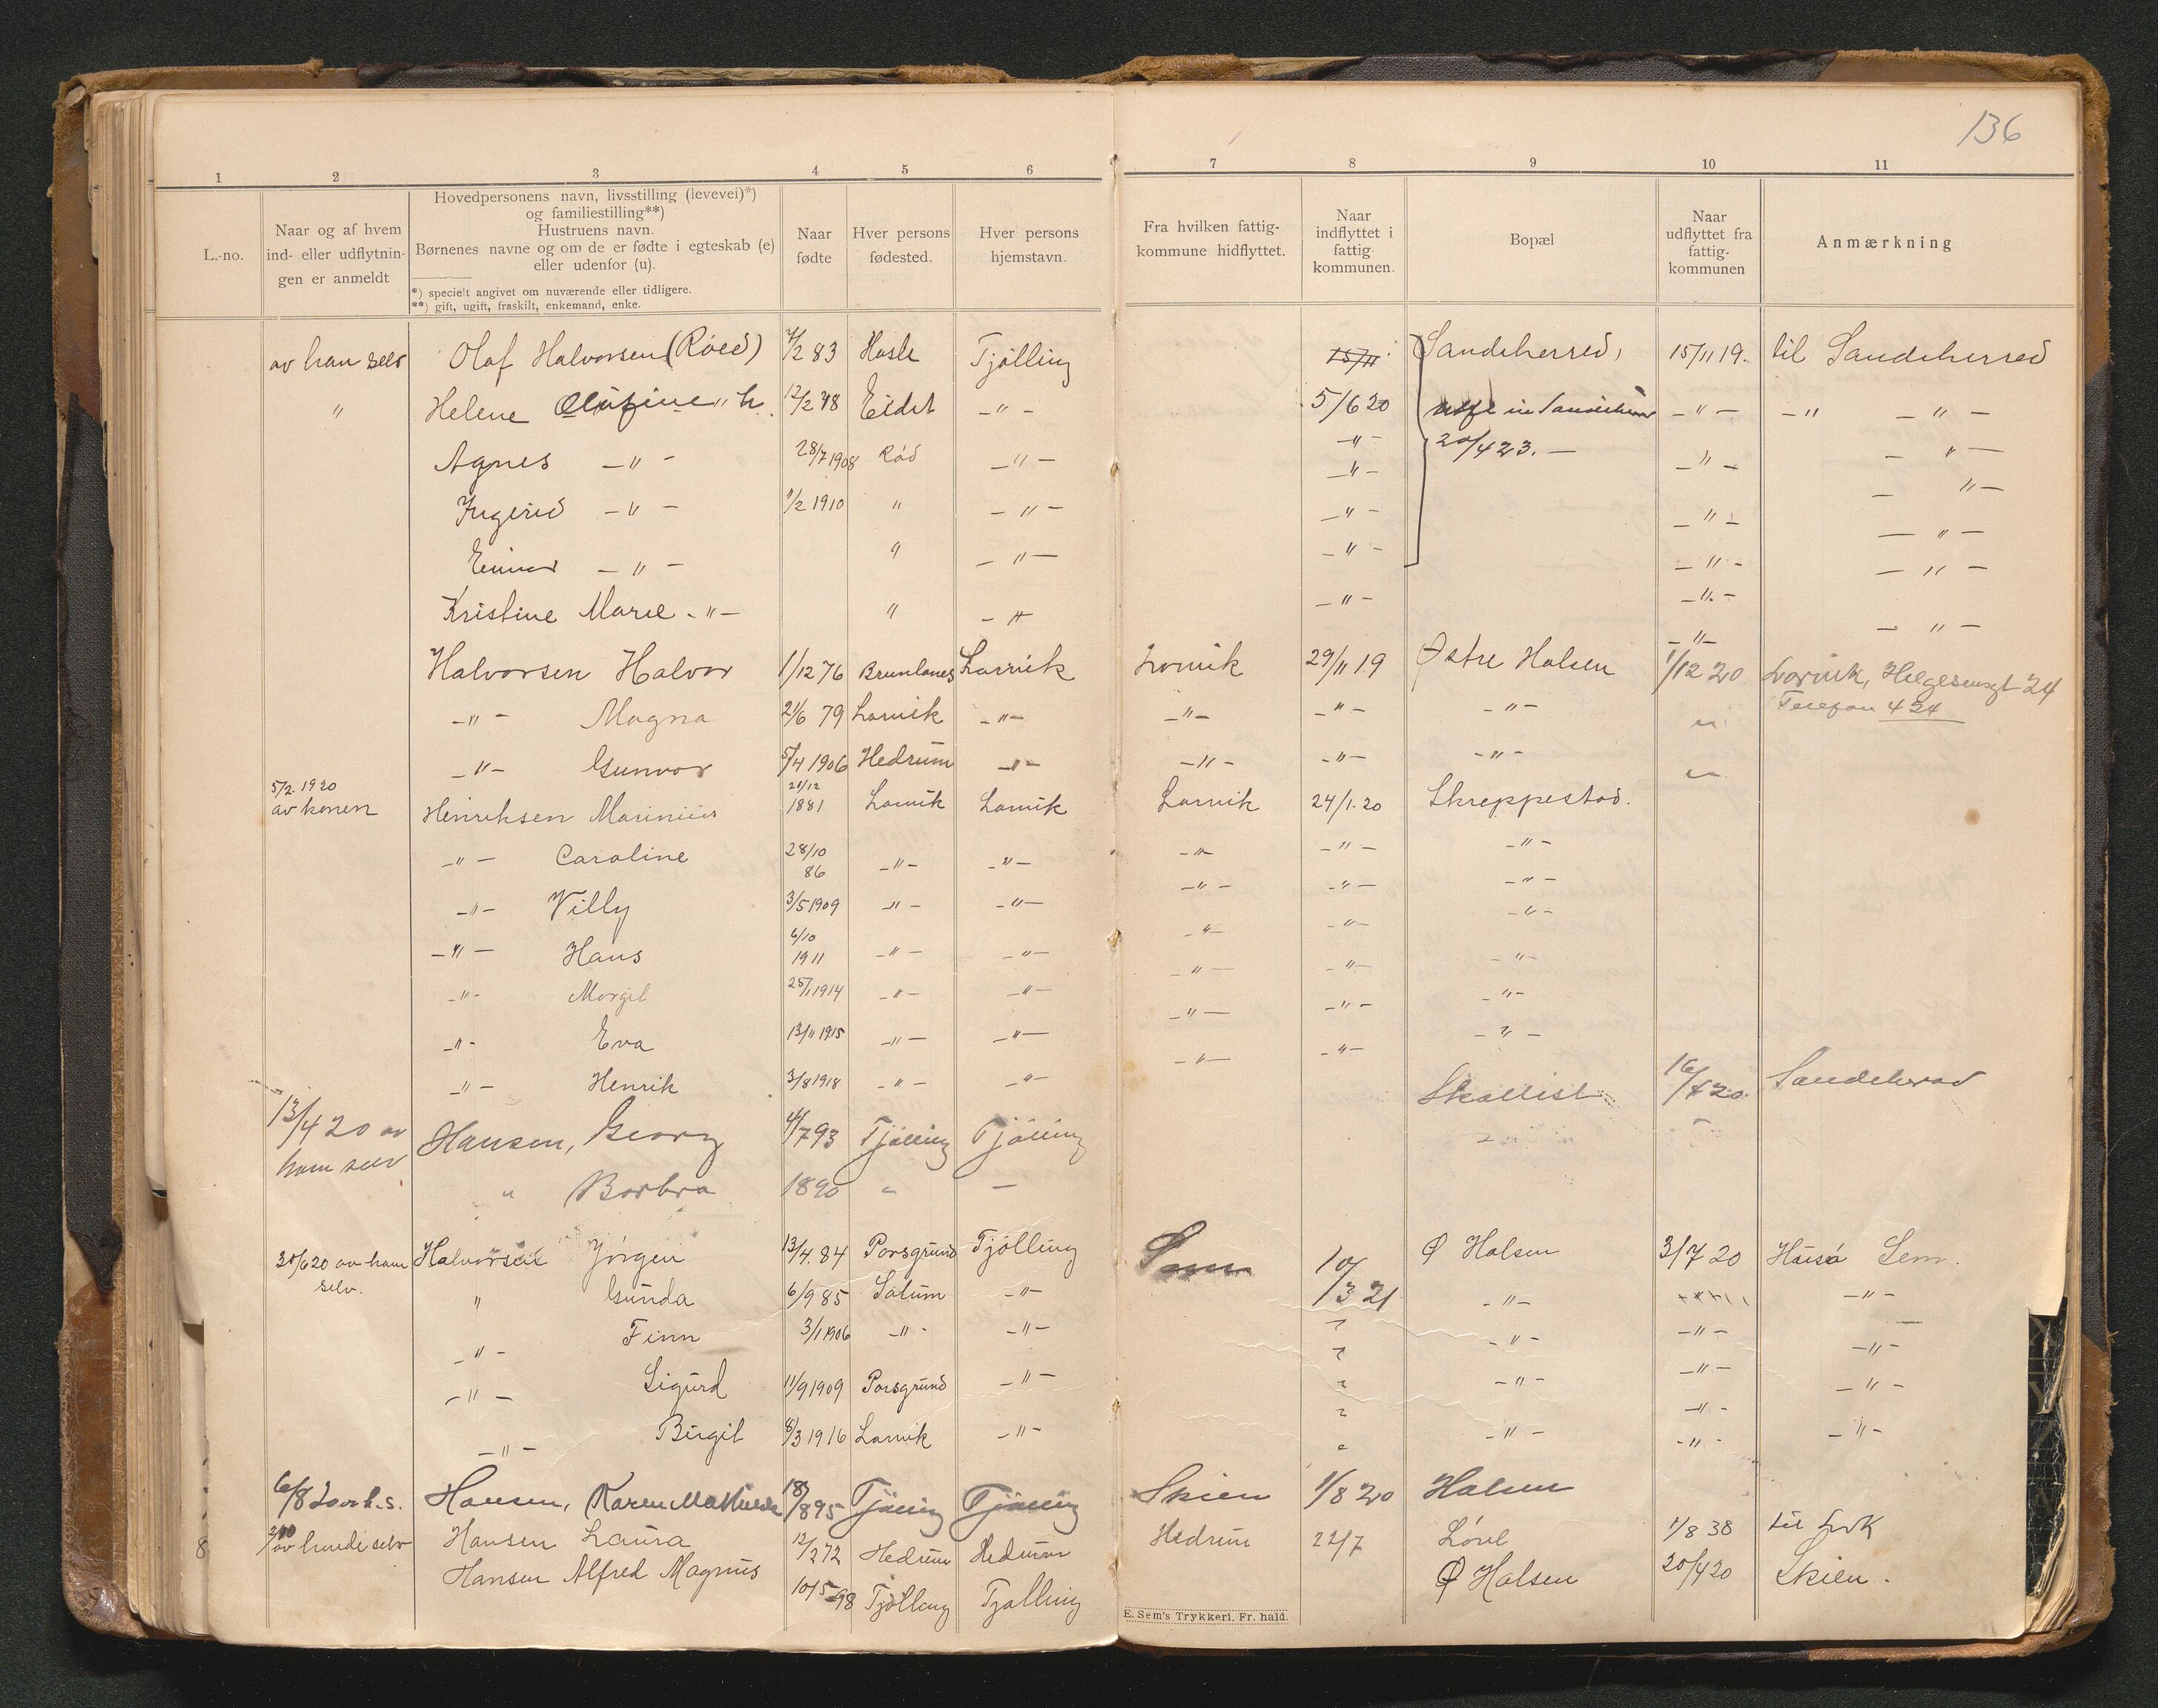 136
1 2 3 4 5 6 7 8 9 10 11
L.-no.
Naar og af hvem
ind- eller udflytnin-
gen er anmeldt
Hovedpersonens navn, livsstilling (levevei)*)
og familiestilling**)
Hustruens navn.
Børnenes navne og om de er fødte i egteskab (e)
eller udenfor (u).
*) specielt angivet om nuværende eller tidligere.
**) gift, ugift, fraskilt, enkemand, enke.
Naar
fødte
Hver persons
fødested.
Hver persons
hjemstavn.
Fra hvilken fattig-
kommune hidflyttet.
Naar
indflyttet i
fattig-
kommunen.
Bopæl
Naar
udflyttet fra
fattig-
kommunen
Anmærkning
av han selv Olaf Halvorsen (Røed) 83 Hasle Tjølling 15/11 Sandeherred, 15/11 19. til Sandeherred
" Helene Olufine " h. Eidet -"- 5/6 20 -"- -" -"-
Agnes -"- 28/7 1908 Rød -"- -"- 20/4 23. - -"- -"-
Ingerid -"- 1/2 1910 " -"- -"- -"- -"-
Einar -"- " -"- -"- -"- -"-
Kristine Marie -"- " -"- -"- -"- -"-
Halvorsen Halvor 1/12 76 Brunlanes Larvik Larvik 29/11 19 Østre Halsen 1/12 20 Larvik, Helgesensgt 24
Telefon 424
-"- Magna 21/6 79 Larvik -"- -"- -"- -"- "
-"- Gunvor 5/4 1906 Hedrum -"- -"- -"- -"- "
5/2. 1920
av konen Henriksen Marinius 21/12 1881 Larvik Larvik Larvik 24/1. 20 Skreppestad.
-"- Caroline 28/10 86 -"- -"- -"- -"- -"-
-"- Villy 3/5 1909 -"- -"- -"- -"- -"-
-"- Hans 6/10 1911 -"- -"- -"- -"- -"-
-"- Margit 25/1 1914 -"- -"- -"- -"- -"-
-"- Eva 13/11 1915 -"- -"- -"- -"- -"-
-"- Henrik 3/8 1918 -"- -"- -"- -"- -"-
13/4 20 av
ham selv Hansen, Georg 4/7 93 Tjølling Tjølling 20. Sandeherad
" Borbra 1890 " -
30/6 20 av ham
selv. Halvorsen Jørgen 13/4. 84 Porsgrund Tjølling Sem 10/3 21 Ø Halsen 3/7 20 Sem.
" Gunda 6/9 85 Solum -"- -"- -"-
-"- Finn 3/1 1906 -"- -"- -"- -"- -"-
-"- Sigurd 11/9 1909 Porsgrund -"- -"- -"- -"-
-"- Birgit 8/3 1916 Larvik -"- -"- -"- -"-
6/8 20 av h. s. Hansen, Karen Mathilde Tjølling Tjølling Skien 1/8 20 Halsen
8 2/10 av hende selv Hansen Laura 12/2 72 Hedrum Hedrum Hedrum 22/7 1/8 38 til Lvk
Hansen Alfred Magnus 10/5 98 Tjølling Tjølling Ø Halsen 20/4 20 Skien.
E. Sem's Trykkeri, Fr.hald.